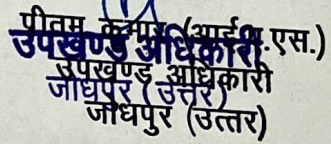 पीतम कुमार (आई.ए.एस.)
उपखण्ड अधिकारी
उपखण्ड अधिकारी
जोधपुर (उत्तर)
जोधपुर (उत्तर)